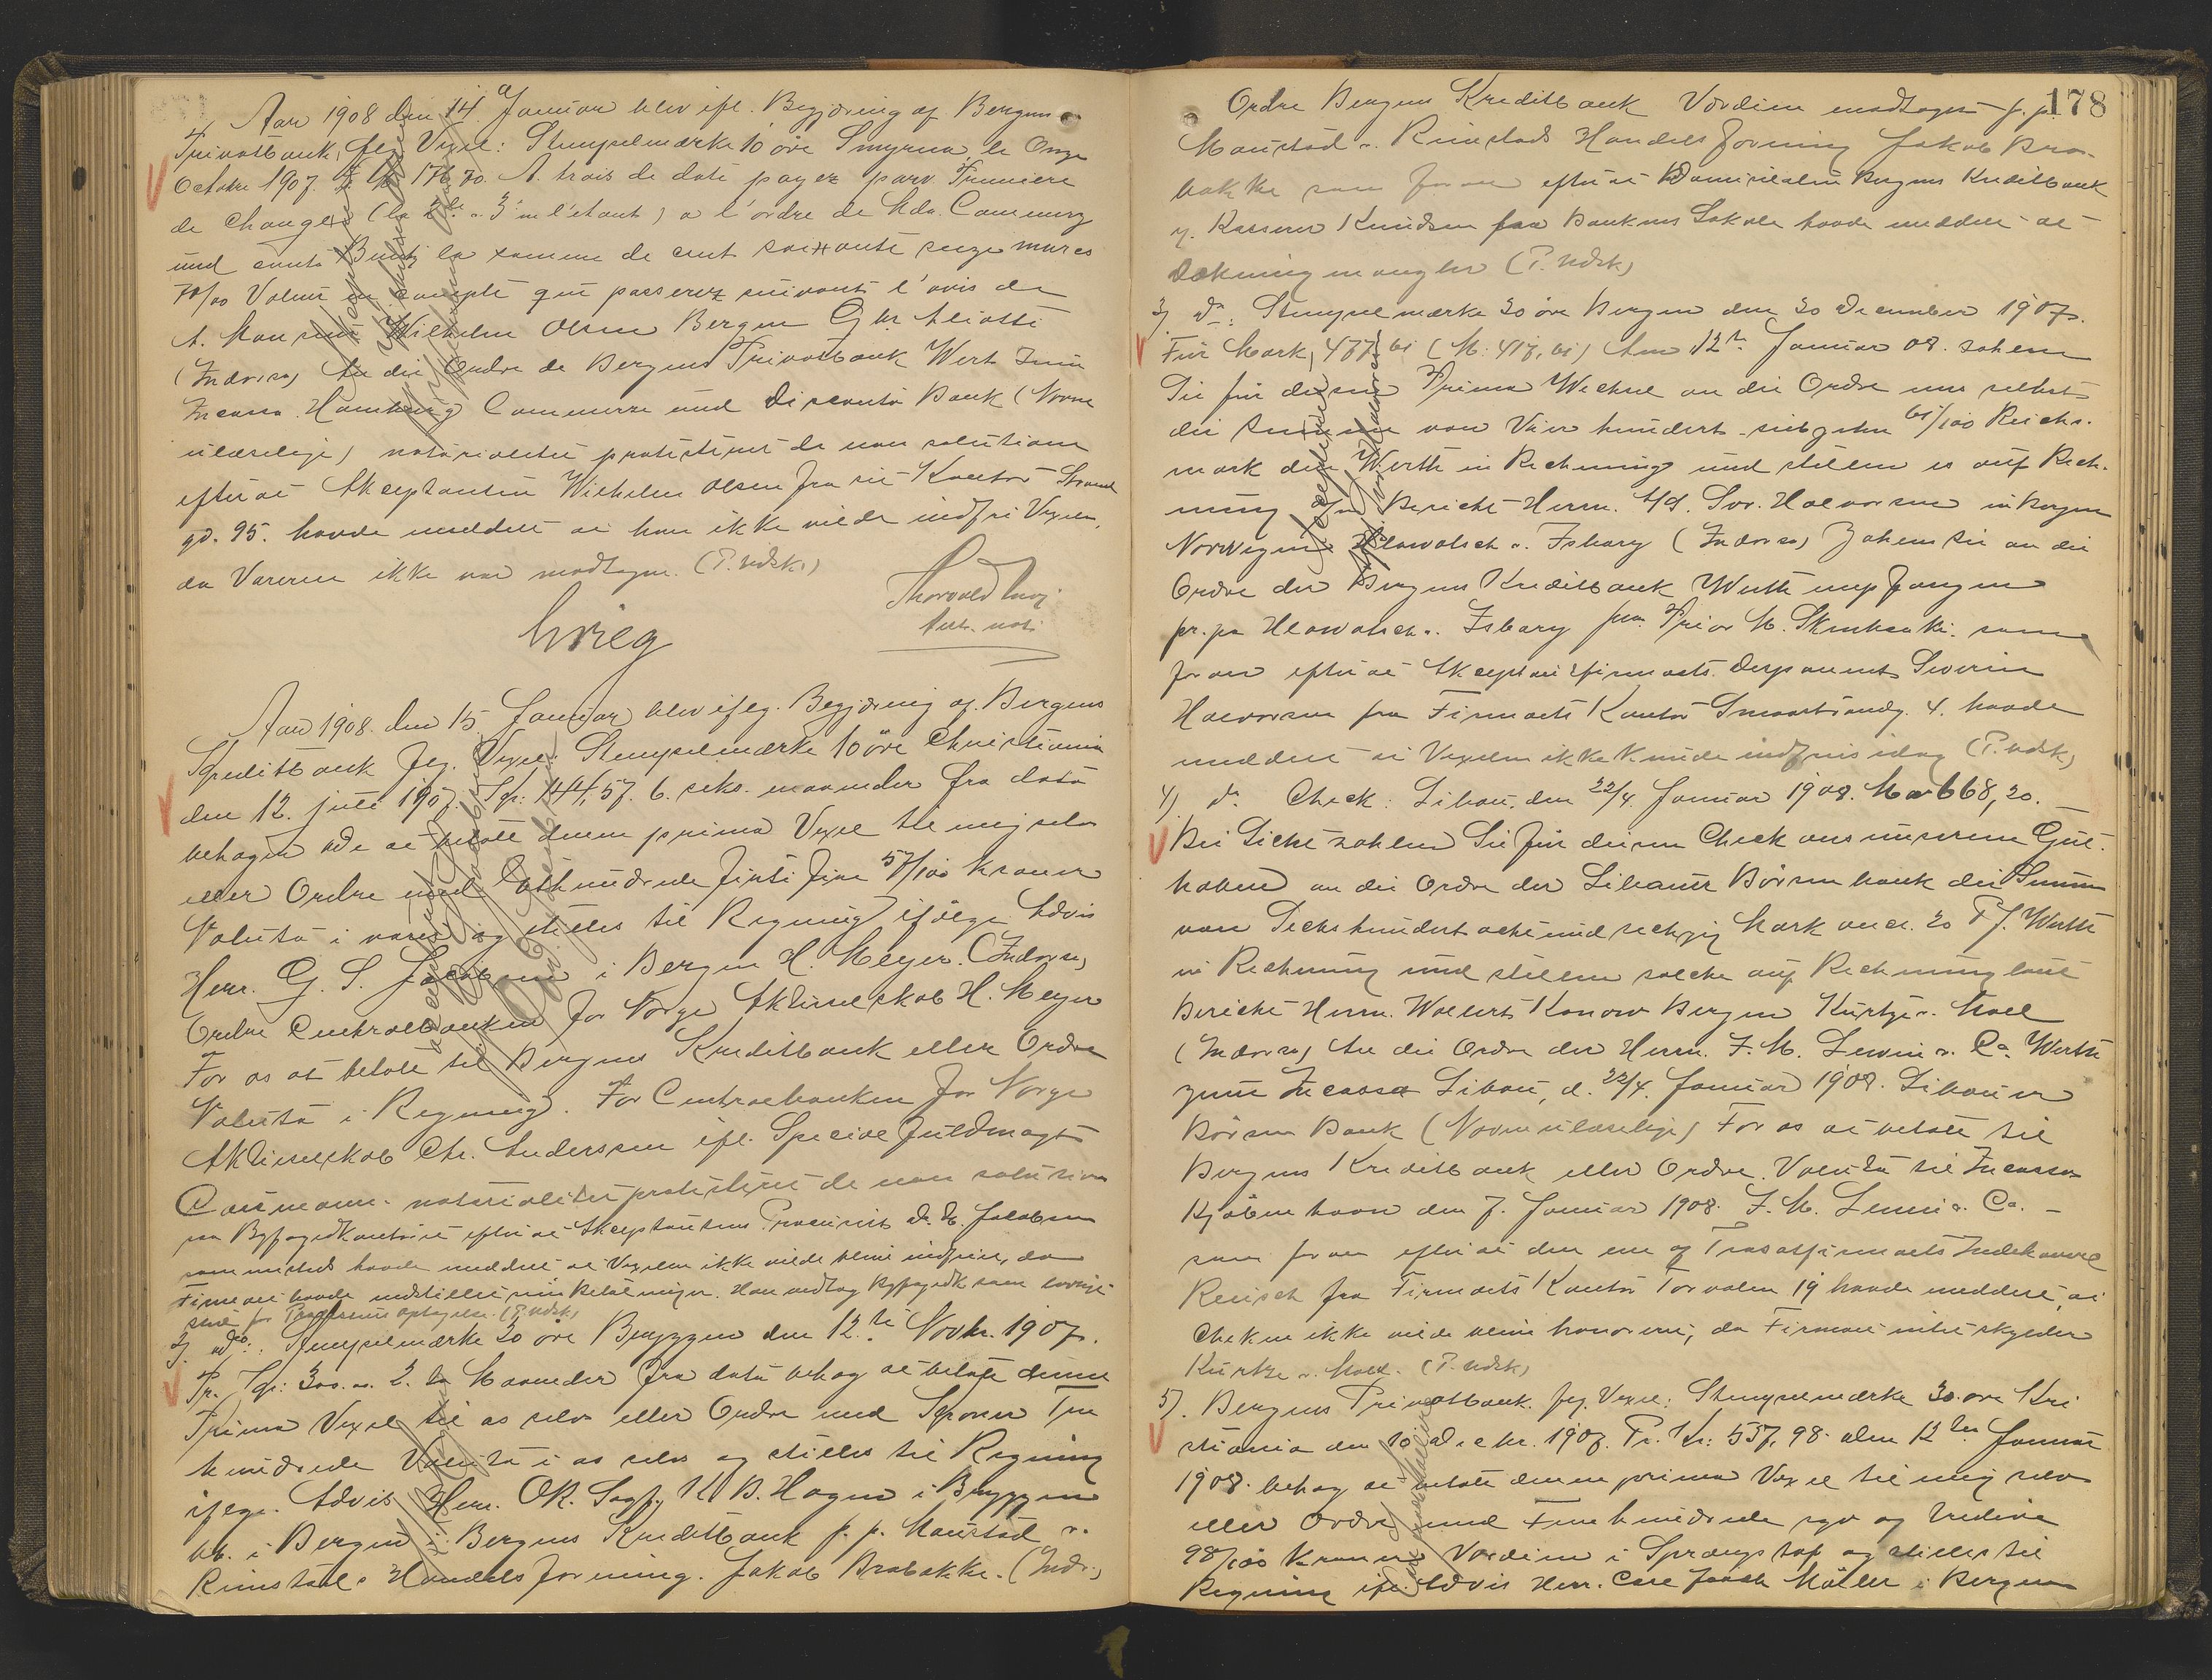 Aar 1908 den 14. Januar blev ifl. Begjæring af Bergens
Privatbank, flg. Vexel: Stempelmærke 10 öre Smyrna le Onze
Octobre 1907. 176,70. A trois de date payez par Premiere
de Change (la 2de & 3me l'étant) a l'ordre de Mrs. Commerz
und Bank la somme de cent soixante seize marcs
70/00 Valeur en compte que passerez suivant l'avis de
A. Monsieur Wilhelm Olsen Bergen Aliotti
(Indorso) An die Ordre de Bergens Privatbank Wert zum
Incasso. Hamburg Commerz und Disconto Bank (Navne
ulæselige) notarialiter protesteret de non solutione
efter at Akceptanten Wilhelm Olsen fra sit Kontor Strand
gd. 95. havde meddelt at han ikke vilde indfri Vexelen,
da Varerne ikke var modtagne. (P. udstk.)
Grieg
Thorvald
Aut. not.
Aar 1908. den 15. Januar blev ifølg. Begjæring af Bergens
Kreditbank flg. Vexel: Stempelmærke 10 öre Christiania
den 12. juli 1907. Kr: 144,57. 6. seks maaneder fra dato
behager De at betale denne prima Vexel til mig selv
eller Ordre med Ethundrede firti fire 57/100 Kroner
Valuta i varer og stilles til Regning ifølge Advis
Herr. G. S. Jacobsen i Bergen H. Meyer. (Indorso)
Ordre Centralbanken for Norge Aktieselskab H. Meyer
For os at betale til Bergens Kreditbank eller Ordre
Valuta i Regning. For Centralbanken for Norge
Aktieselskab Chr. Anderssen ifl. Speciel fuldmagt
notarialiter protesteret de non solutione
paa Byfogedkontoret efter at Akceptantens Procurist Jacobsen
sammesteds havde meddelt at Vexelen ikke vilde blive indfriet, da
Firmaet havde indstillet sine Betalinger. Han vedtog Byfogedk. som lovligt
sted for Protestens optagelse. (P. udstk)
2) do: Stempelmærke 30 öre Bryggen den 12.te Novbr. 1907.
Pr. Kr: 300.00. 2. to Maaneder fra dato behag at betale denne
Prima Vexel til os selv eller Ordre med Kroner Tre
hundrede Valuta i os selv og stilles til Regning
ifølge Advis Herr. O. K. B. Hagen i Bryggen
bet. i Bergen i Bergens Kreditbank p. p. Maurstad &
Rimstads Handelsforening. Jakob Brobakke. (Indo.)
178
Ordre Bergens Kreditbank Værdien modtaget p. p.
Maurstad & Rimstads Handelsforening Jakob Bro-
bakke som foran efter at Domicilanten Bergens Kreditbank
v. Kasserer Knudsen fra Bankens Lokale havde meddelt at
Dækning mangler (P. udstk)
3) do: Stempelmærke 30 öre Bergen den 20 December 1907.
Für Mark, 417,61 (M: 417,61) Am 12ten Januar 08. zahlen
Sie für diesen Prima Wechsel an die Ordre uns selbst
die Summe von Vier hundert siebzehn 61/100 Reichs-
mark den Werth in Rechnung und stellen es auf Rech-
nung Bericht Herrn. A/S. Sev. Halvorsen in Bergen
Norwegen Hlawatsch & Isbary (Indorso) Zahlen Sie an die
Ordre der Bergens Kreditbank Werth empfangen
pr. pa Hlawatsch & Isbary som
foran efter at Akceptantfirmaets Disponent Severin
Halvorsen fra Firmaets Kontor Smaastrandg. 4. havde
meddelt at Vexelen ikke kunde indfries idag (P. udstk)
4) do Check: Libau, den 22/4. Januar 1908. Mark 668,20. _
Bei Sicht zahlen Sie für diesen Check aus unserem Gut-
haben an die Ordre der Libauer Börsenbank die Summe
von Sechshundert achtundsechzig Mark auch 20 Pf. Werth
in Rechnung und stellen solche auf Rechnung laut
Bericht Herrn. Wollert Konow Bergen Kurtze & Mall
(Indorso) An die Ordre der Herrn. I. M. Levin & Co. Werth
zum Incasso Libau, d. 22/4. Januar 1908. Libauer
Börsen Bank (Navne ulæselige) For os at betale til
Bergens Kreditbank eller Ordre. Valuta til Incasso
Kjøbenhavn den 7. Januar 1908. I. M. Levin & Co. _
som foran efter at den ene af Trasatfirmaets Indehavere
Reusch fra Firmaets Kontor Torvalm 19 havde meddelt, at
Cheken ikke vilde blive honoreret, da Firmaet intet skylder
Kurtze & Mall. (P. udstk)
5). Bergens Privatbank. flg. Vexel: Stempelmærke 30 öre Kri
stiania den 10 Decbr. 1907. Pr. Kr: 537,98. den 12te Januar
1908. behag at betale denne prima Vexel til mig selv
eller Ordre med Fem hundrede syv og tredive
98/100 Kroner Værdien i Sprængstof og stilles til
Regning ifl. Advis Herr. Carl Møller i Bergen